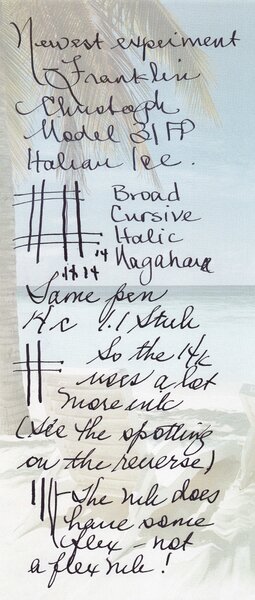 Newest experiment
Franklin
Christoph
Model 31 FP
Italian Ice.
Broad
Cursive
Italic
Nagahara
14
14 14
Same pen
14c 1.1 Stub
So the 14k
uses a lot
more ink
(see the spotting
on the reverse)
The nib does
have some
flex - not
a flex nib!